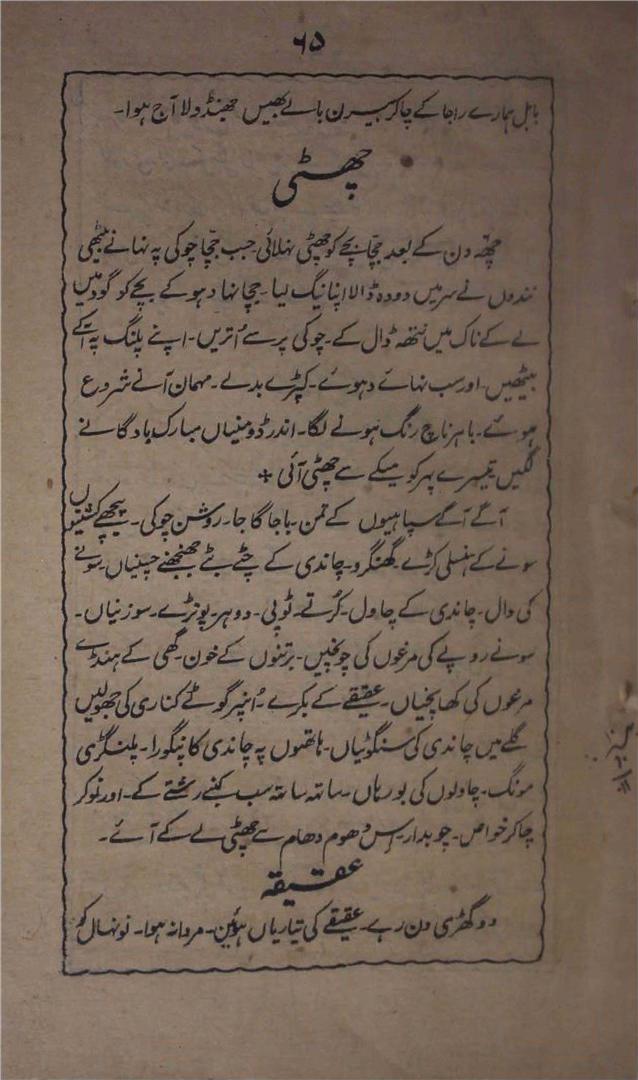 ۶۵
بابل ہمارے راجا کے چاکر بیرن بالے بھیس ھنڈولا آج ہوا۔
چھٹی
چھٹہ دن کے بعد جچا بچے کو چھٹی نہلائی جب جچا چوکی پہ نہانے بیٹھی
نندوں نے سر میں دودہ ڈالا اپنا نیگ لیا۔ جچا نہا دہو کے بچے کو گود میں
لے کے ناک میں نتھہ ڈال کے۔ چوکی پر سے اُتریں۔ اپنے پلنگ پہ آکے
بیٹھیں۔ اور سب نہائے دہوئے۔ کپڑے بدلے۔ مہمان آنے شروع
ہوئے۔ باہر ناچ رنگ ہونے لگا۔ اندر ڈومنیاں مبارک باد گانے
لگیں تیسرے پہر کو میکے سے چھٹی آئی ٭
آگے آگے سپاہیوں کے تمن۔ باجا گاجا۔ روشن چوکی۔ پیچھے کشتیوں
سونے کے ہنسلی کڑے۔ گھنگرو۔ چاندی کے چٹے بٹے جھنجھنے چسنیاں۔ سونے
کی دال۔ چاندی کے چاول۔ کرتے۔ ٹوپی۔ دوہر۔ پوتڑے۔ سوزنیاں۔
سونے روپے کی مرغوں کی چونچیں۔ برتنوں کے خون۔ گھی کے ہنڈے
مرغوں کی کھانچیاں۔ عقیقے کے بکرے۔ اُنپر گوٹے کناری کی جھولیں
گلے میں چاندی کی سنگوٹیاں۔ ہاتھوں پہ چاندی کا پنگورا۔ پلنگڑی
مونگ۔ چاولوں کی بوریاں۔ ساتہ ساتہ سب کنبے رشتے کے۔ اور نوکر
چاکر خواص۔ چوبدار۔ اِس دھوم دھام سے چھٹی لے کے آئے۔
عقیقہ
دو گھڑی دن رہے۔ عقیقے کی تیاریاں ہوئیں۔ مردانہ ہوا۔ نونہال کو